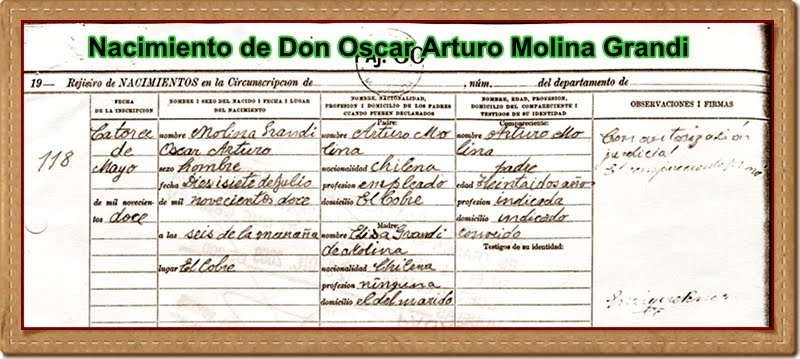 Nacimiento de Don Oscar Arturo Molina Grandi
19— Rejistro de NACIMIENTOS en la Circunscripcion de , núm. del departamento de
FECHA
DE LA INSCRIPCION
NOMBRE I SEXO DEL NACIDO I FECHA I LUGAR
DEL NACIMIENTO
NOMBRE, NACIONALIDAD,
PROFESION I DOMICILIO DE LOS PADRES
CUANDO FUEREN DECLARADOS
NOMBRE, EDAD, PROFESION,
DOMICILIO DEL COMPARECIENTE I
TESTIGOS DE SU IDENTIDAD
OBSERVACIONES I FIRMAS
118
Catorce
de
Mayo
de mil novecien-
tos doce
nombre Molina Grandi
Oscar Arturo
sexo hombre
fecha Diesisiete de Julio
de mil novecientos doce
a las seis de la mañana
lugar El Cobre
Padre:
nombre Arturo Mo
lina
nacionalidad chilena
profesion empleado
domicilio El Cobre
Madre:
nombre Elisa Grandi
de Molina
nacionalidad Chilena
profesion ninguna
domicilio el del marido
Compareciente:
nombre Arturo Mo
lina
padre
edad treintaidos años
profesion indicada
domicilio indicado
conocido
Testigos de su identidad:
Con autorización
judicial
El compareciente